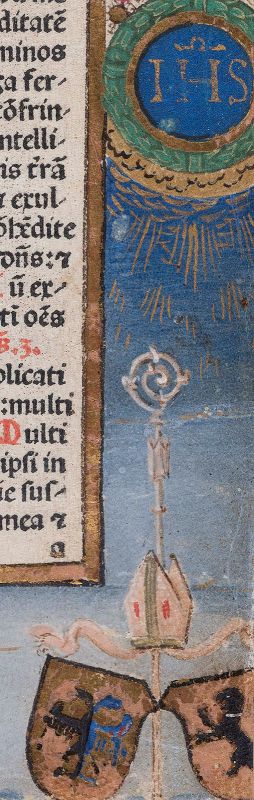 ditatē
minos
ça fer-
cōfrin-
ntelli-
is t̄rā
ꝛ exul-
ōhēdite
oñs:ꝛ
ū ex-
ti oēs
s.3.
plicati
:multi
Multi
ipsi in
ie sus-
mea ꝛ
a
IHS